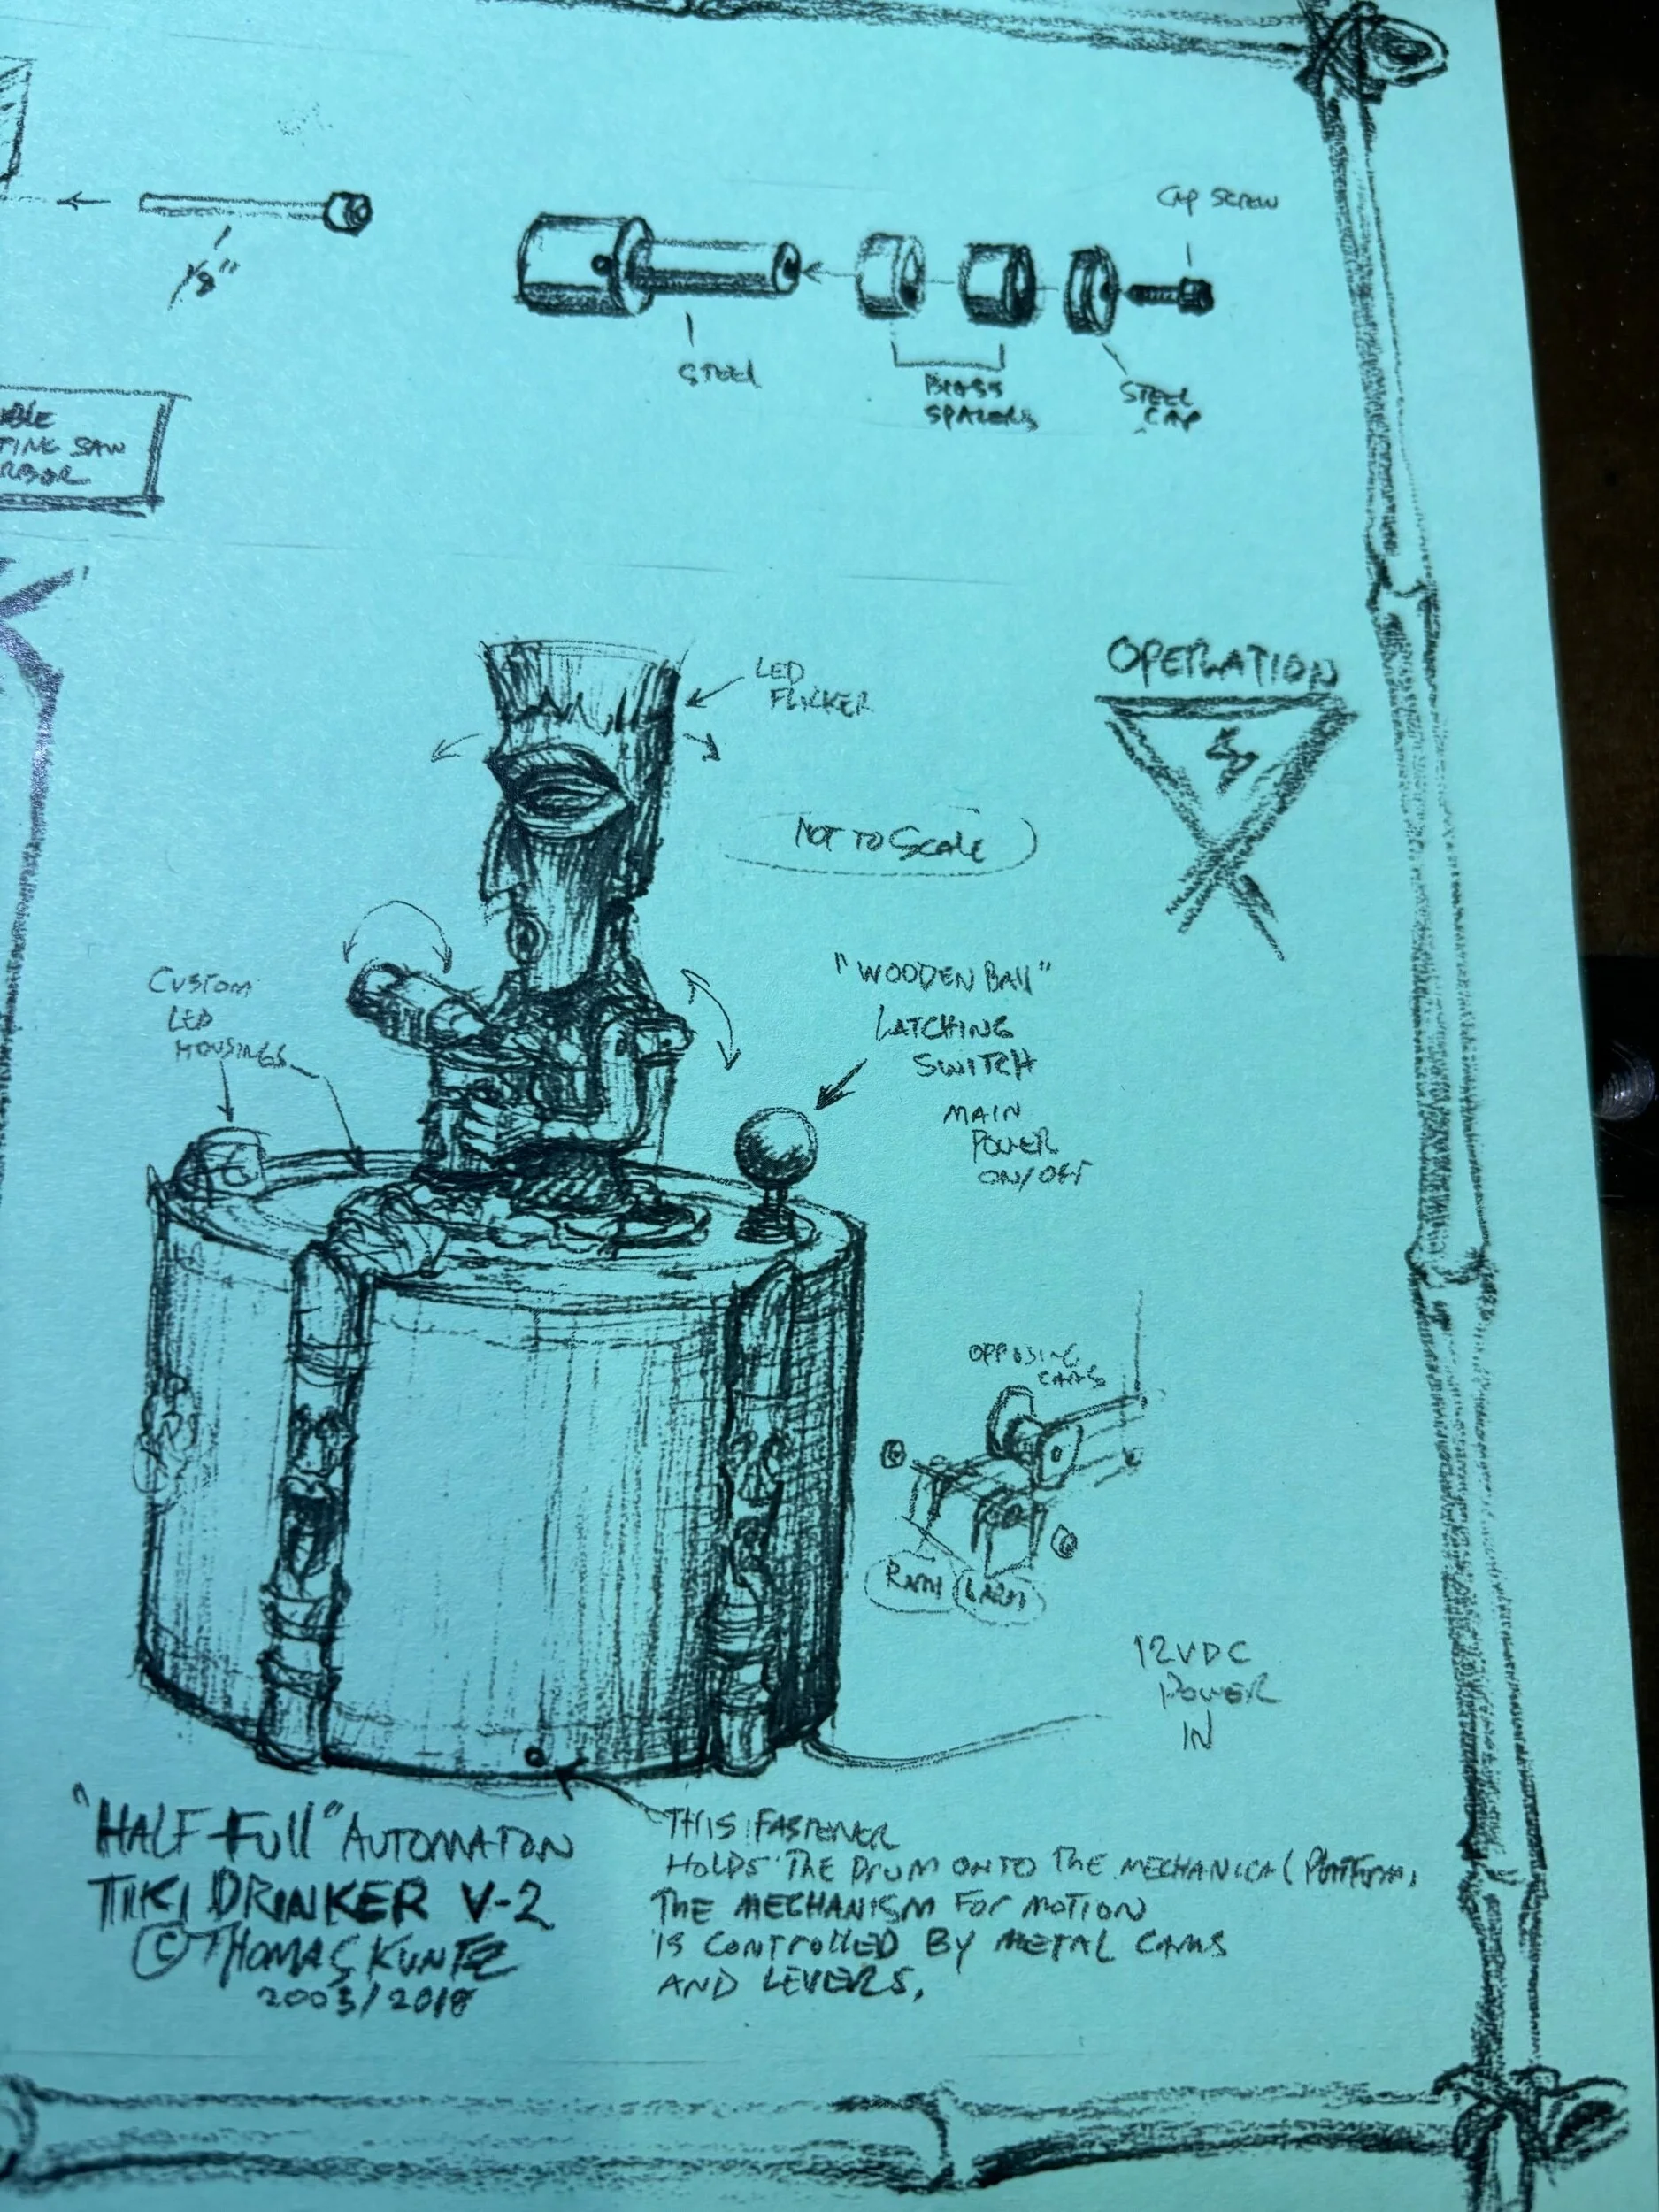 CAP SCREW
1/8"
STEEL
BRASS
SPACERS
STEEL
CAP
TING SAW
RBOR
LED
FLICKER
OPERATION
NOT TO SCALE
CUSTOM
LED
HOUSINGS
"WOODEN BALL"
LATCHING
SWITCH
MAIN
POWER
ON/OFF
OPPOSING
CAMS
RARM
LARM
12VDC
POWER
IN
"HALF-FULL" AUTOMATON
TIKI DRINKER V-2
© THOMAS KUNTZ
2003/2018
THIS FASTENER
HOLDS THE DRUM ONTO THE MECHANICAL PLATFORM,
THE MECHANISM FOR MOTION
IS CONTROLLED BY METAL CAMS
AND LEVERS.